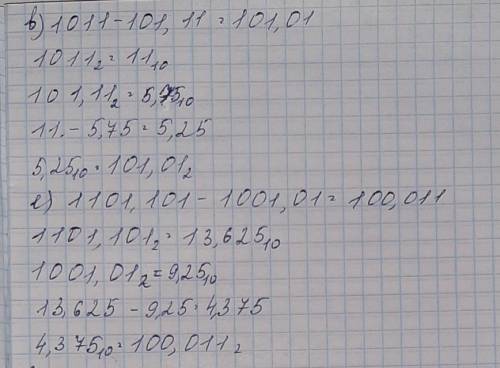 в) 1011-101,11=101,01
1011₂=11₁₀
101,11₂=5,75₁₀
11.-5,75=5,25
5,25₁₀=101,01₂
г) 1101,101-1001,01=100,011
1101,101₂=13,625₁₀
1001,01₂=9,25₁₀
13,625-9,25=4,375
4,375₁₀=100,011₂